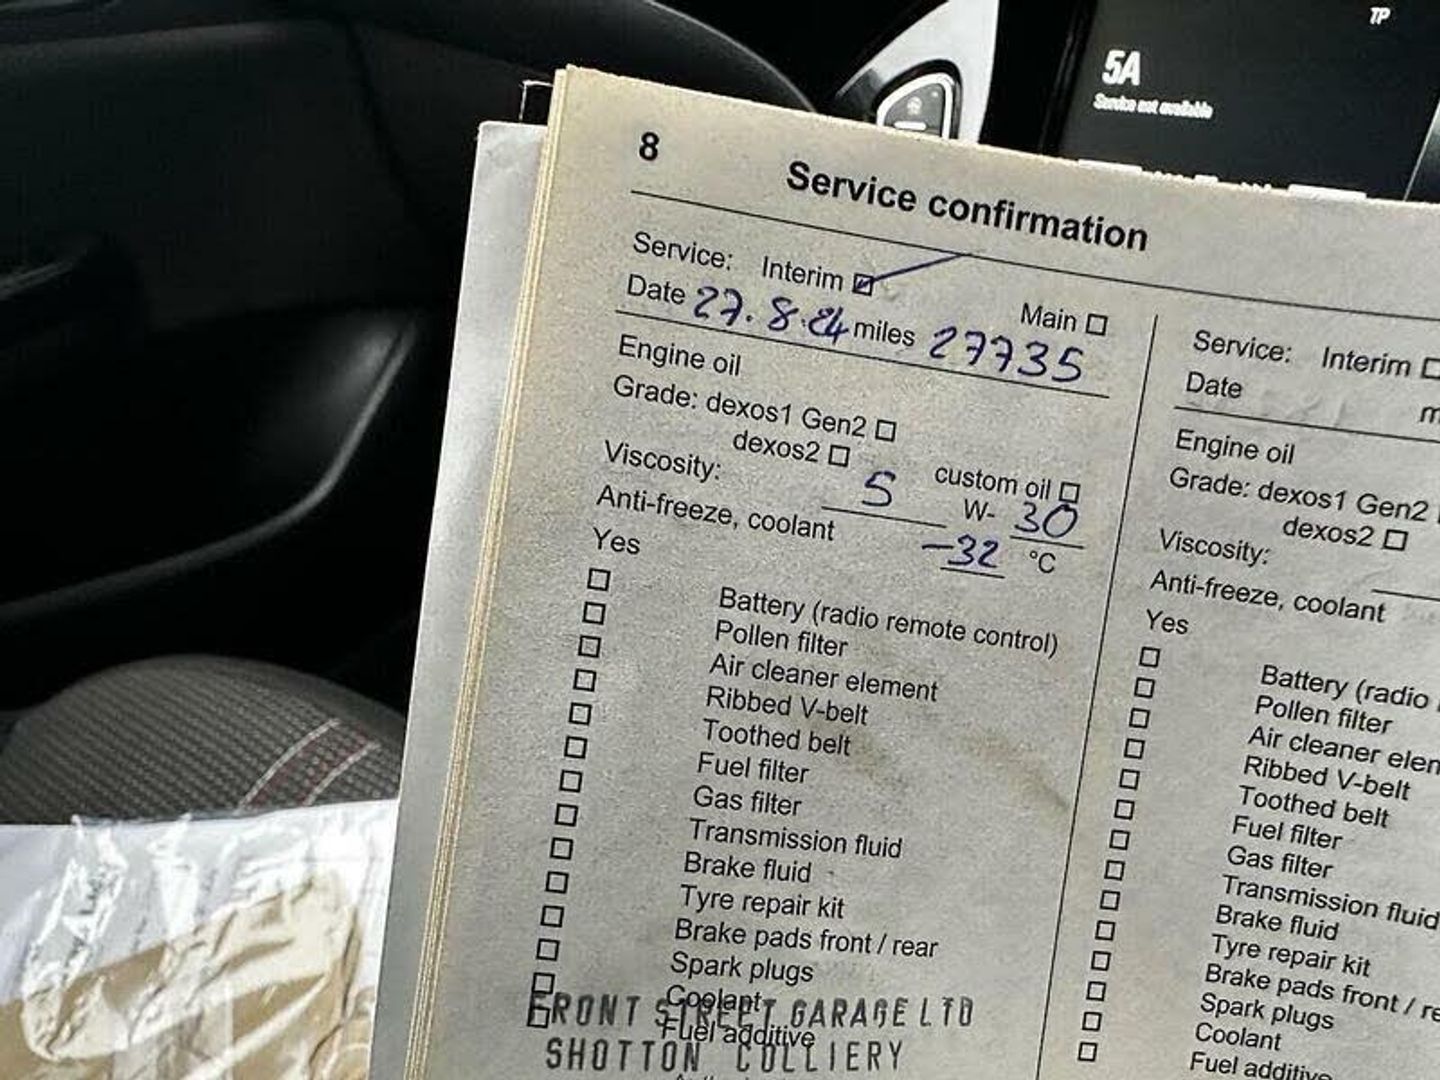 TP
5A
Service not available
8
Service confirmation
Service: Interim
Main
Date 27.8.24 miles 27735
Engine oil
Grade: dexos1 Gen2
dexos2
custom oil
Viscosity: 5 W- 30
Anti-freeze, coolant -32 °C
Yes
Battery (radio remote control)
Pollen filter
Air cleaner element
Ribbed V-belt
Toothed belt
Fuel filter
Gas filter
Transmission fluid
Brake fluid
Tyre repair kit
Brake pads front / rear
Spark plugs
Coolant
Fuel additive
FRONT STREET GARAGE LTD
SHOTTON COLLIERY
Service: Interim
Date
Engine oil
Grade: dexos1 Gen2
dexos2
Viscosity:
Anti-freeze, coolant
Yes
Battery (radio
Pollen filter
Air cleaner elem
Ribbed V-belt
Toothed belt
Fuel filter
Gas filter
Transmission fluid
Brake fluid
Tyre repair kit
Brake pads front / re
Spark plugs
Coolant
Fuel additive